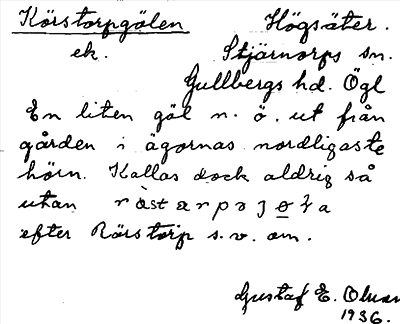 Körstorpgölen Högsäter.
ek. Stjärnorps sn.
Gullbergs hd. Ögl
En liten göl n. ö. ut från
gården i ägornas nordligaste
hörn. Kallas dock aldrig så
utan
efter Rörstorp s.v. om.
Gustaf E. Olsson
1936.